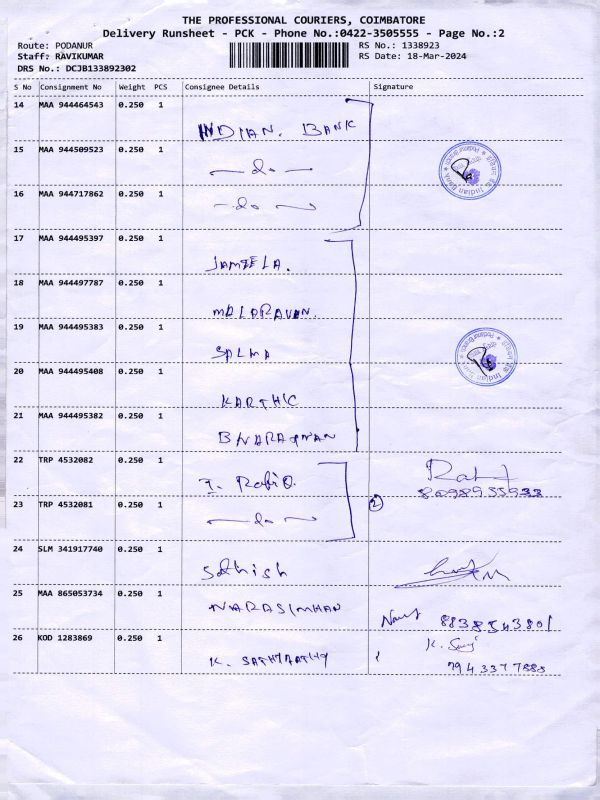 THE PROFESSIONAL COURIERS, COIMBATORE
Delivery Runsheet - PCK - Phone No.:0422-3505555 - Page No.:2
Route: PODANUR RS No.: 1338923
Staff: RAVIKUMAR RS Date: 18-Mar-2024
DRS No.: DCJB133892302
S No Consignment No Weight PCS Consignee Details Signature
14 MAA 944464543 0.250 1
INDIAN. BANK
15 MAA 944509523 0.250 1
— do —
16 MAA 944717862 0.250 1
- do -
17 MAA 944495397 0.250 1
JAMEELA.
18 MAA 944497787 0.250 1
MALARAVAN.
19 MAA 944495383 0.250 1
SALMA
20 MAA 944495408 0.250 1
KARTHIC
21 MAA 944495382 0.250 1
22 TRP 4532082 0.250 1
23 TRP 4532081 0.250 1
— do — 2
24 SLM 341917740 0.250 1
Sathish
25 MAA 865053734 0.250 1
NARASIMHAN 8838543801
26 KOD 1283869 0.250 1
K.